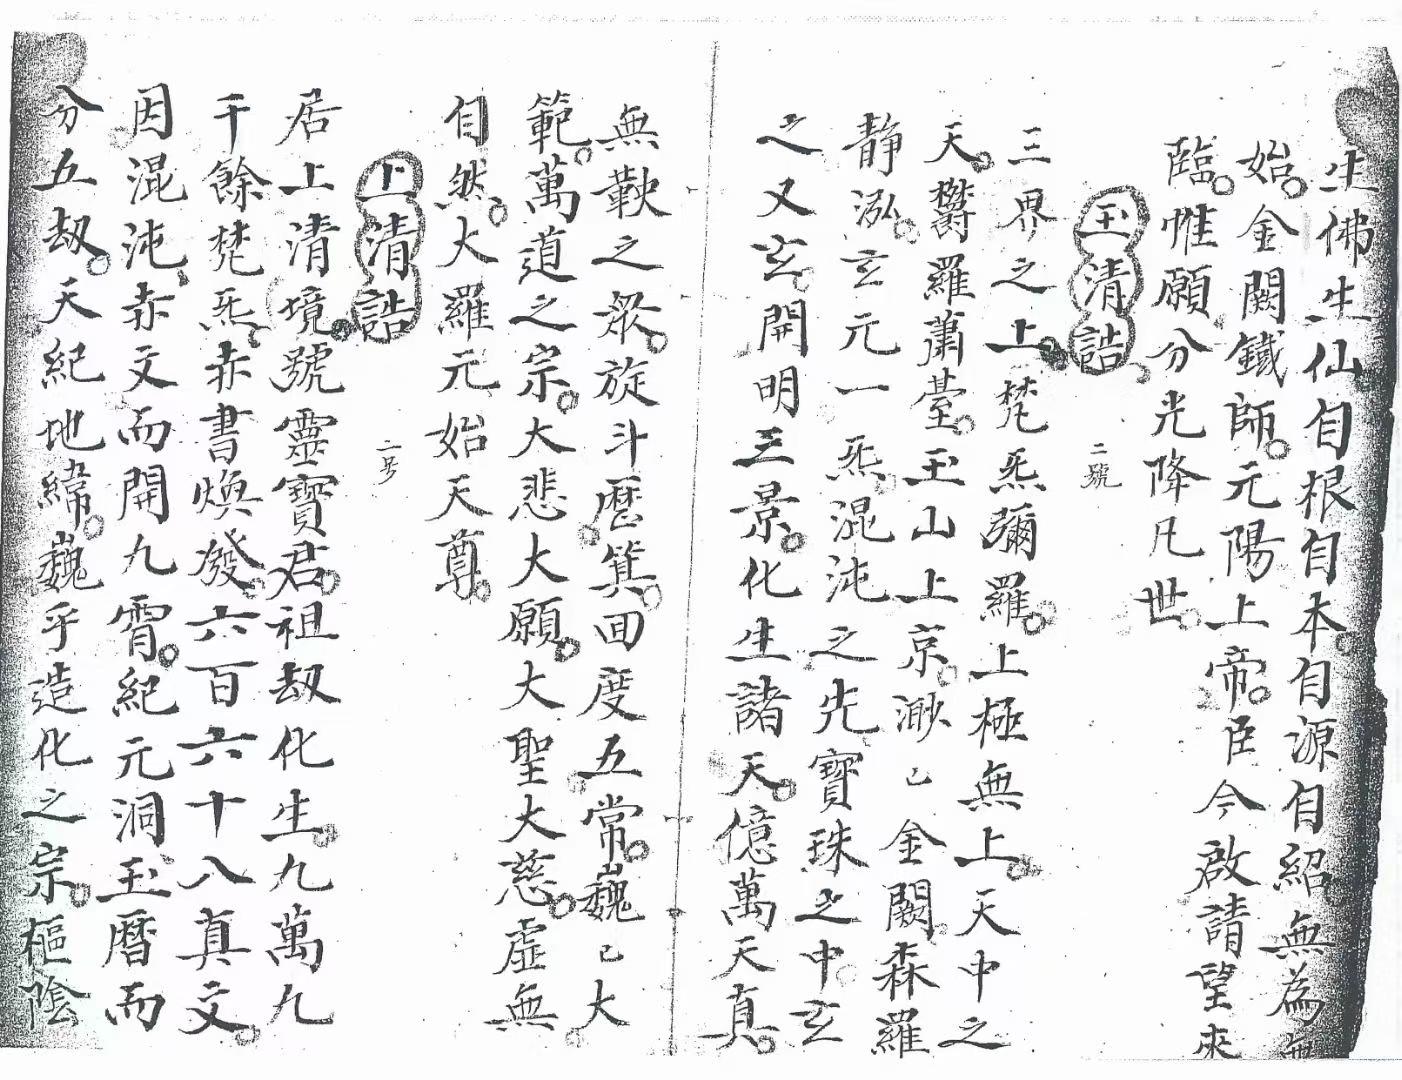 生佛生仙自根自本自源自紹無為無
始金闕鐵師元陽上帝臣今啟請望來
臨惟願分光降凡世
玉清誥 二號
三界之上梵炁彌羅上極無上天中之
天欝羅蕭臺玉山上京渺〻金闕森羅
静泓玄元一炁混沌之先寶珠之中玄
之又玄開明三景化生諸天億萬天真
無鞅之衆旋斗歷箕回度五常巍〻大
範萬道之宗大悲大願大聖大慈虛無
自然大羅元始天尊
上清誥 二号
居上清境號靈寶君祖刼化生九萬九
千餘梵炁赤書煥發六百六十八真文
因混沌赤文而開九霄紀元洞玉曆而
分五刼天紀地緯巍乎造化之宗樞陰